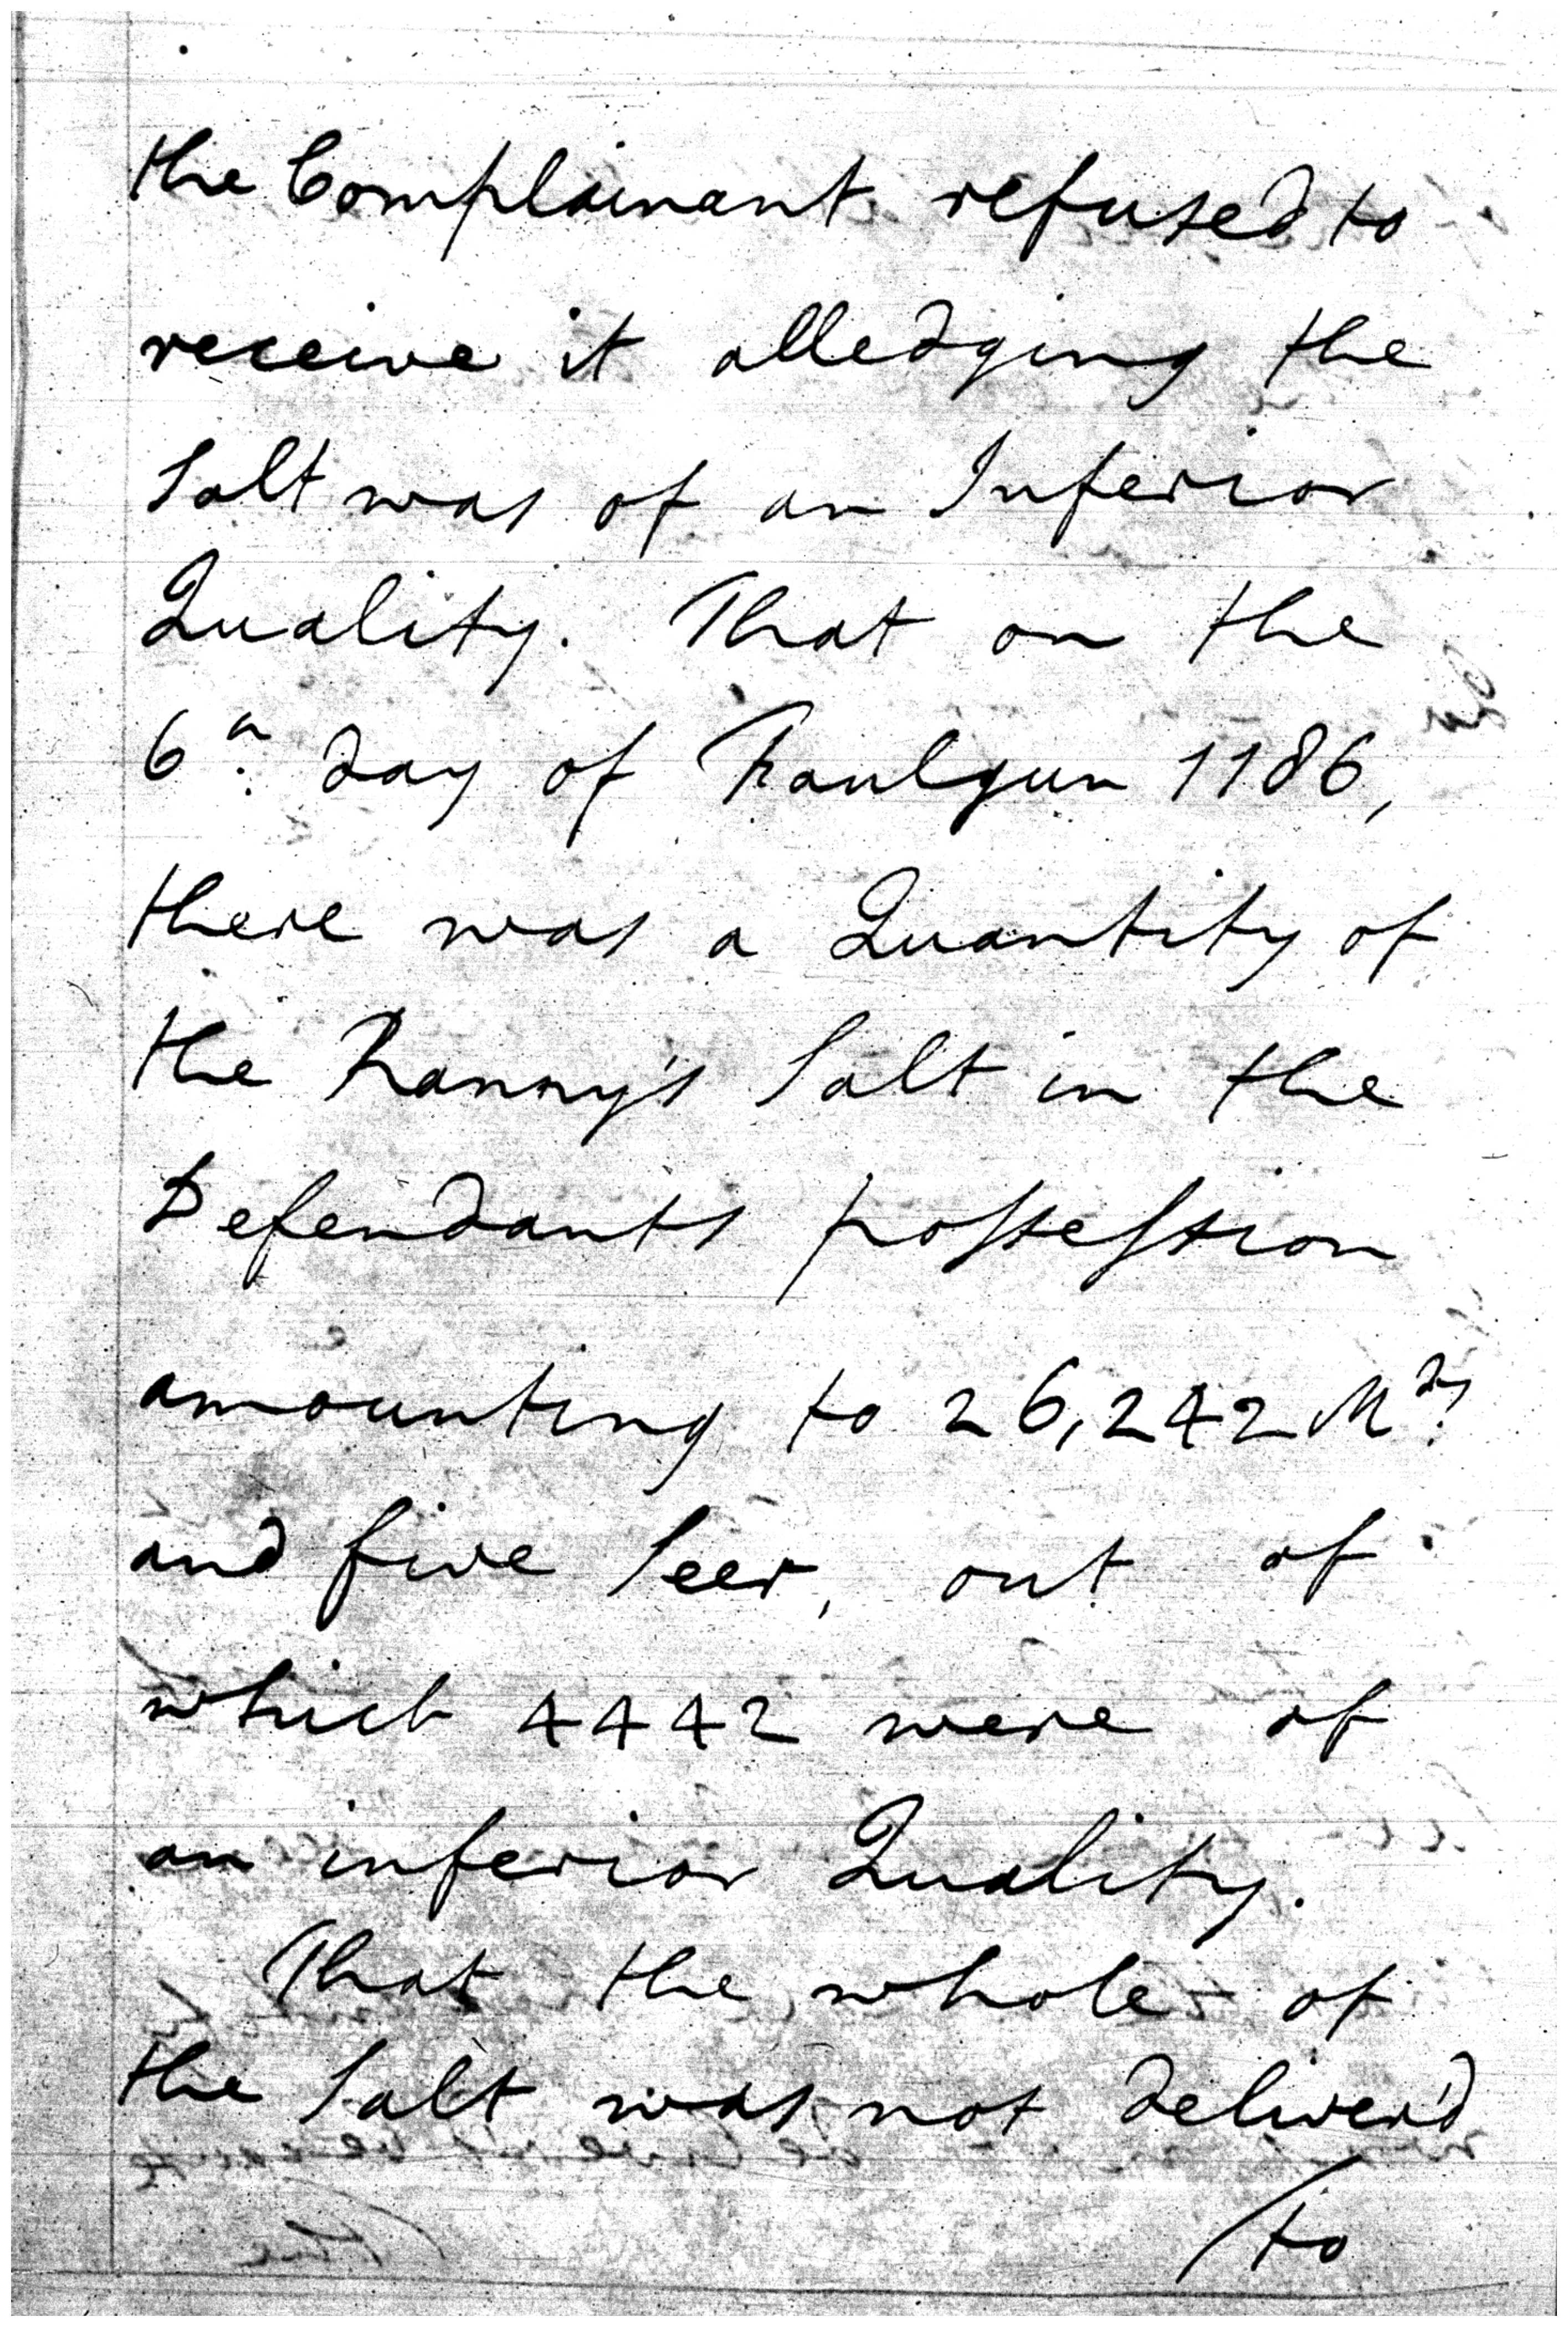 the Complainant refused to
receive it alledging the
Salt was of an Inferior
Quality. That on the
6th day of Faulgun 1186,
there was a Quantity of
the Ranny's Salt in the
Defendants possession
amounting to 26,242 Mds
and five Seer, out of
which 4442 were of
an inferior Quality.
That the whole of
the Salt was not deliver'd
/to